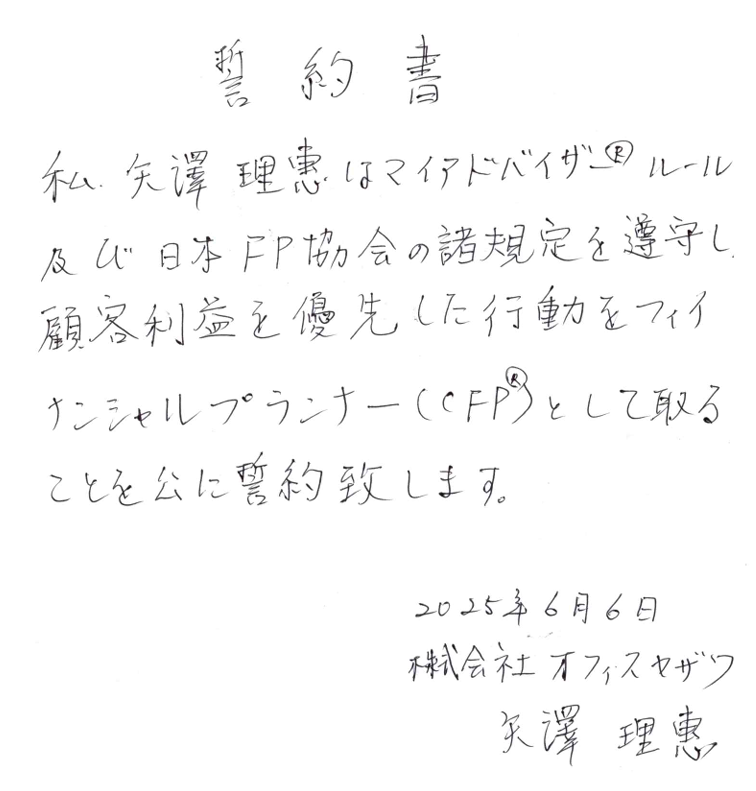 誓約書
私、矢澤 理恵はマイアドバイザー®ルール
及び日本FP協会の諸規定を遵守し、
顧客利益を優先した行動をファイ
ナンシャルプランナー(CFP®)として取る
ことを公に誓約致します。
2025年6月6日
株式会社 オフィスヤザワ
矢澤 理恵